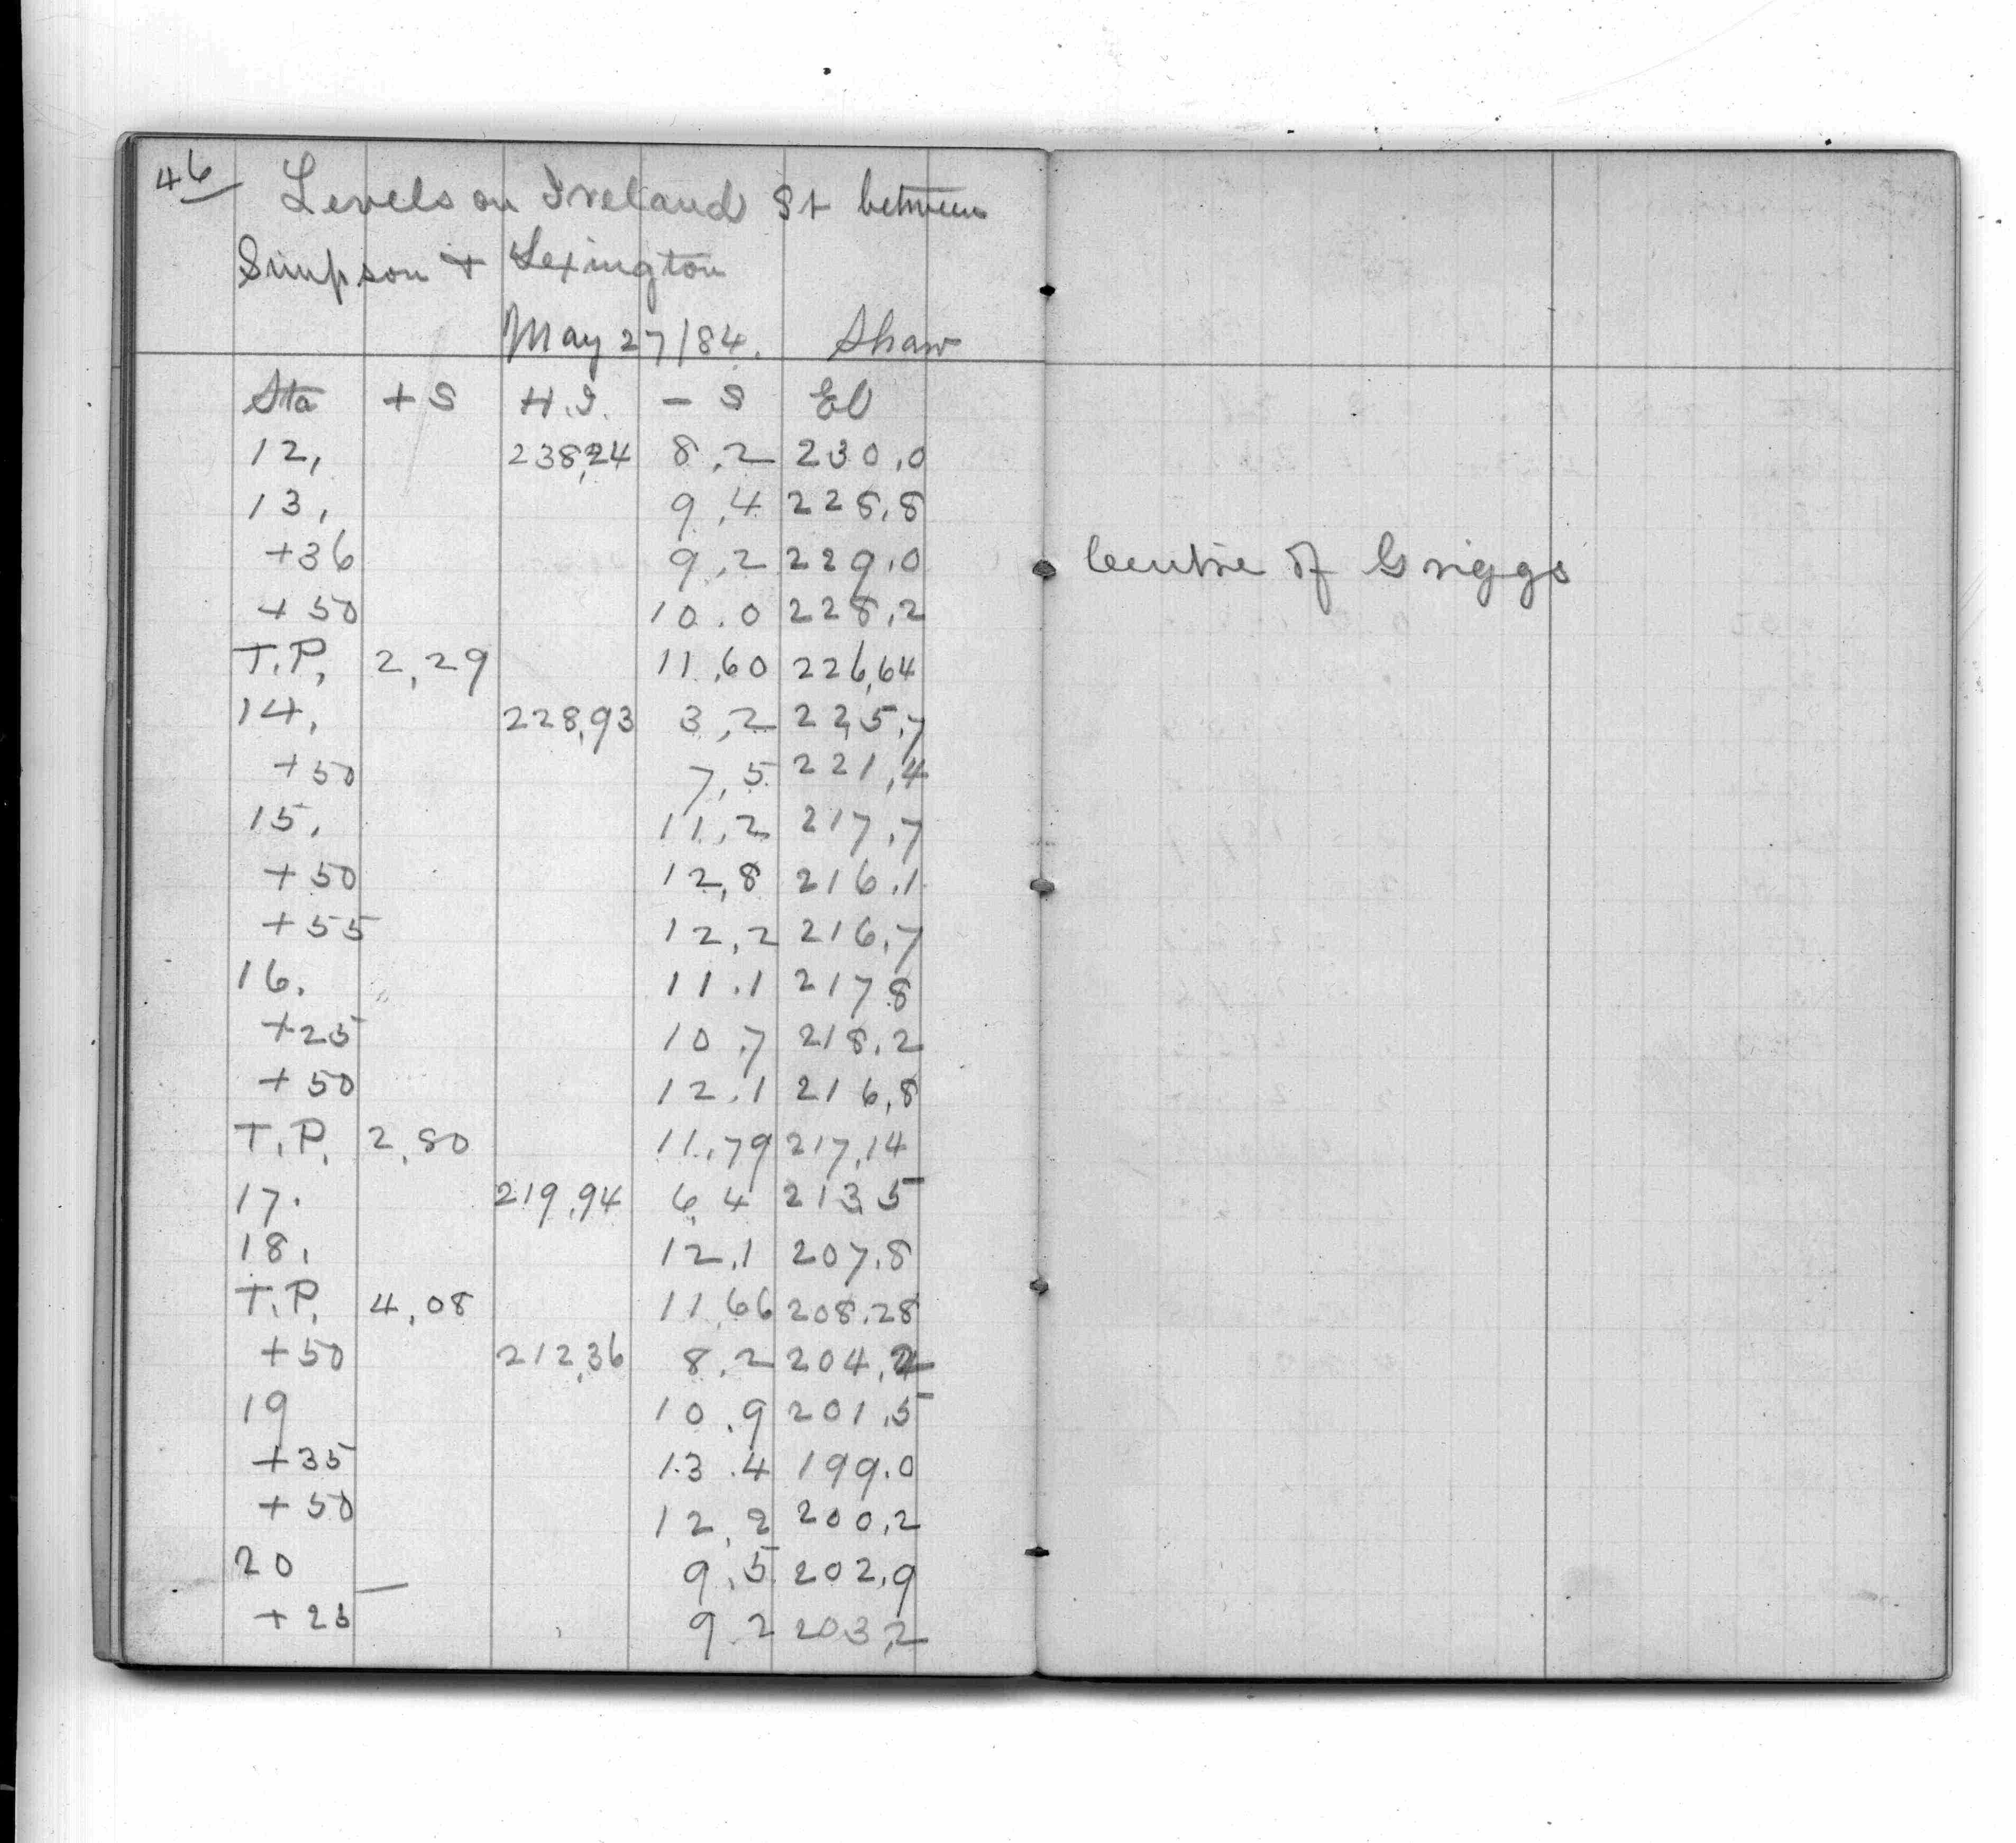 46
Levels on Ireland St between
Simpson + Lexington
May 27/84. Shaw
Sta + S H.I. - S El
12, 238,24 8,2 230,0
13, 9,4 228,8
+36 9,2 229,0 Centre of Griggs
+50 10.0 228,2
T.P, 2,29 11,60 226,64
14, 228,93 3,2 225,7
+50 7,5 221,4
15, 11,2 217,7
+50 12,8 216.1
+55 12,2 216,7
16. 11.1 217 8
+25 10.7 218,2
+50 12.1 216,8
T.P, 2,80 11,79 217,14
17. 219,94 6,4 213,5
18, 12,1 207,8
T.P, 4,08 11,66 208,28
+50 212,36 8,2 204,2
19 10.9 201,5
+35 13.4 199.0
+50 12,2 200,2
20 9,5 202,9
+25 9.2 203,2